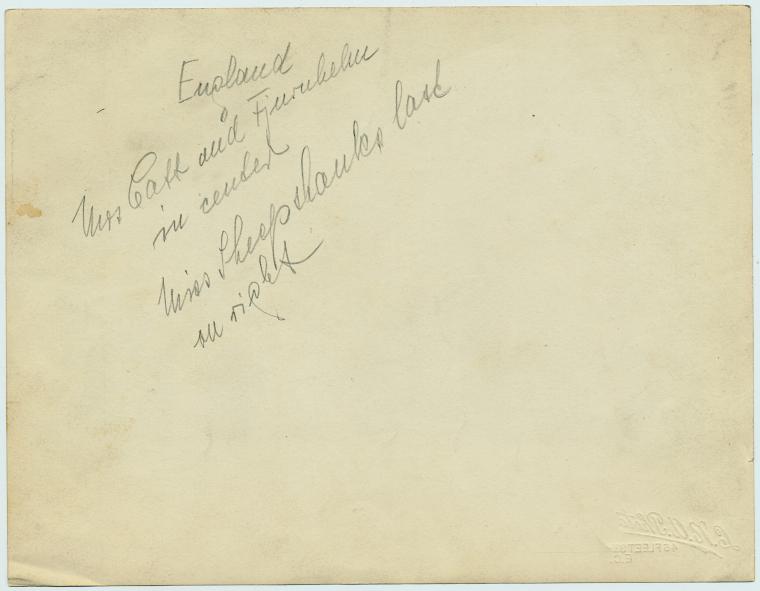 England
Mrs Catt and Fjurnhelm
in center
Miss Sheepshanks last
on right
46 FLEET ST.
E.C.